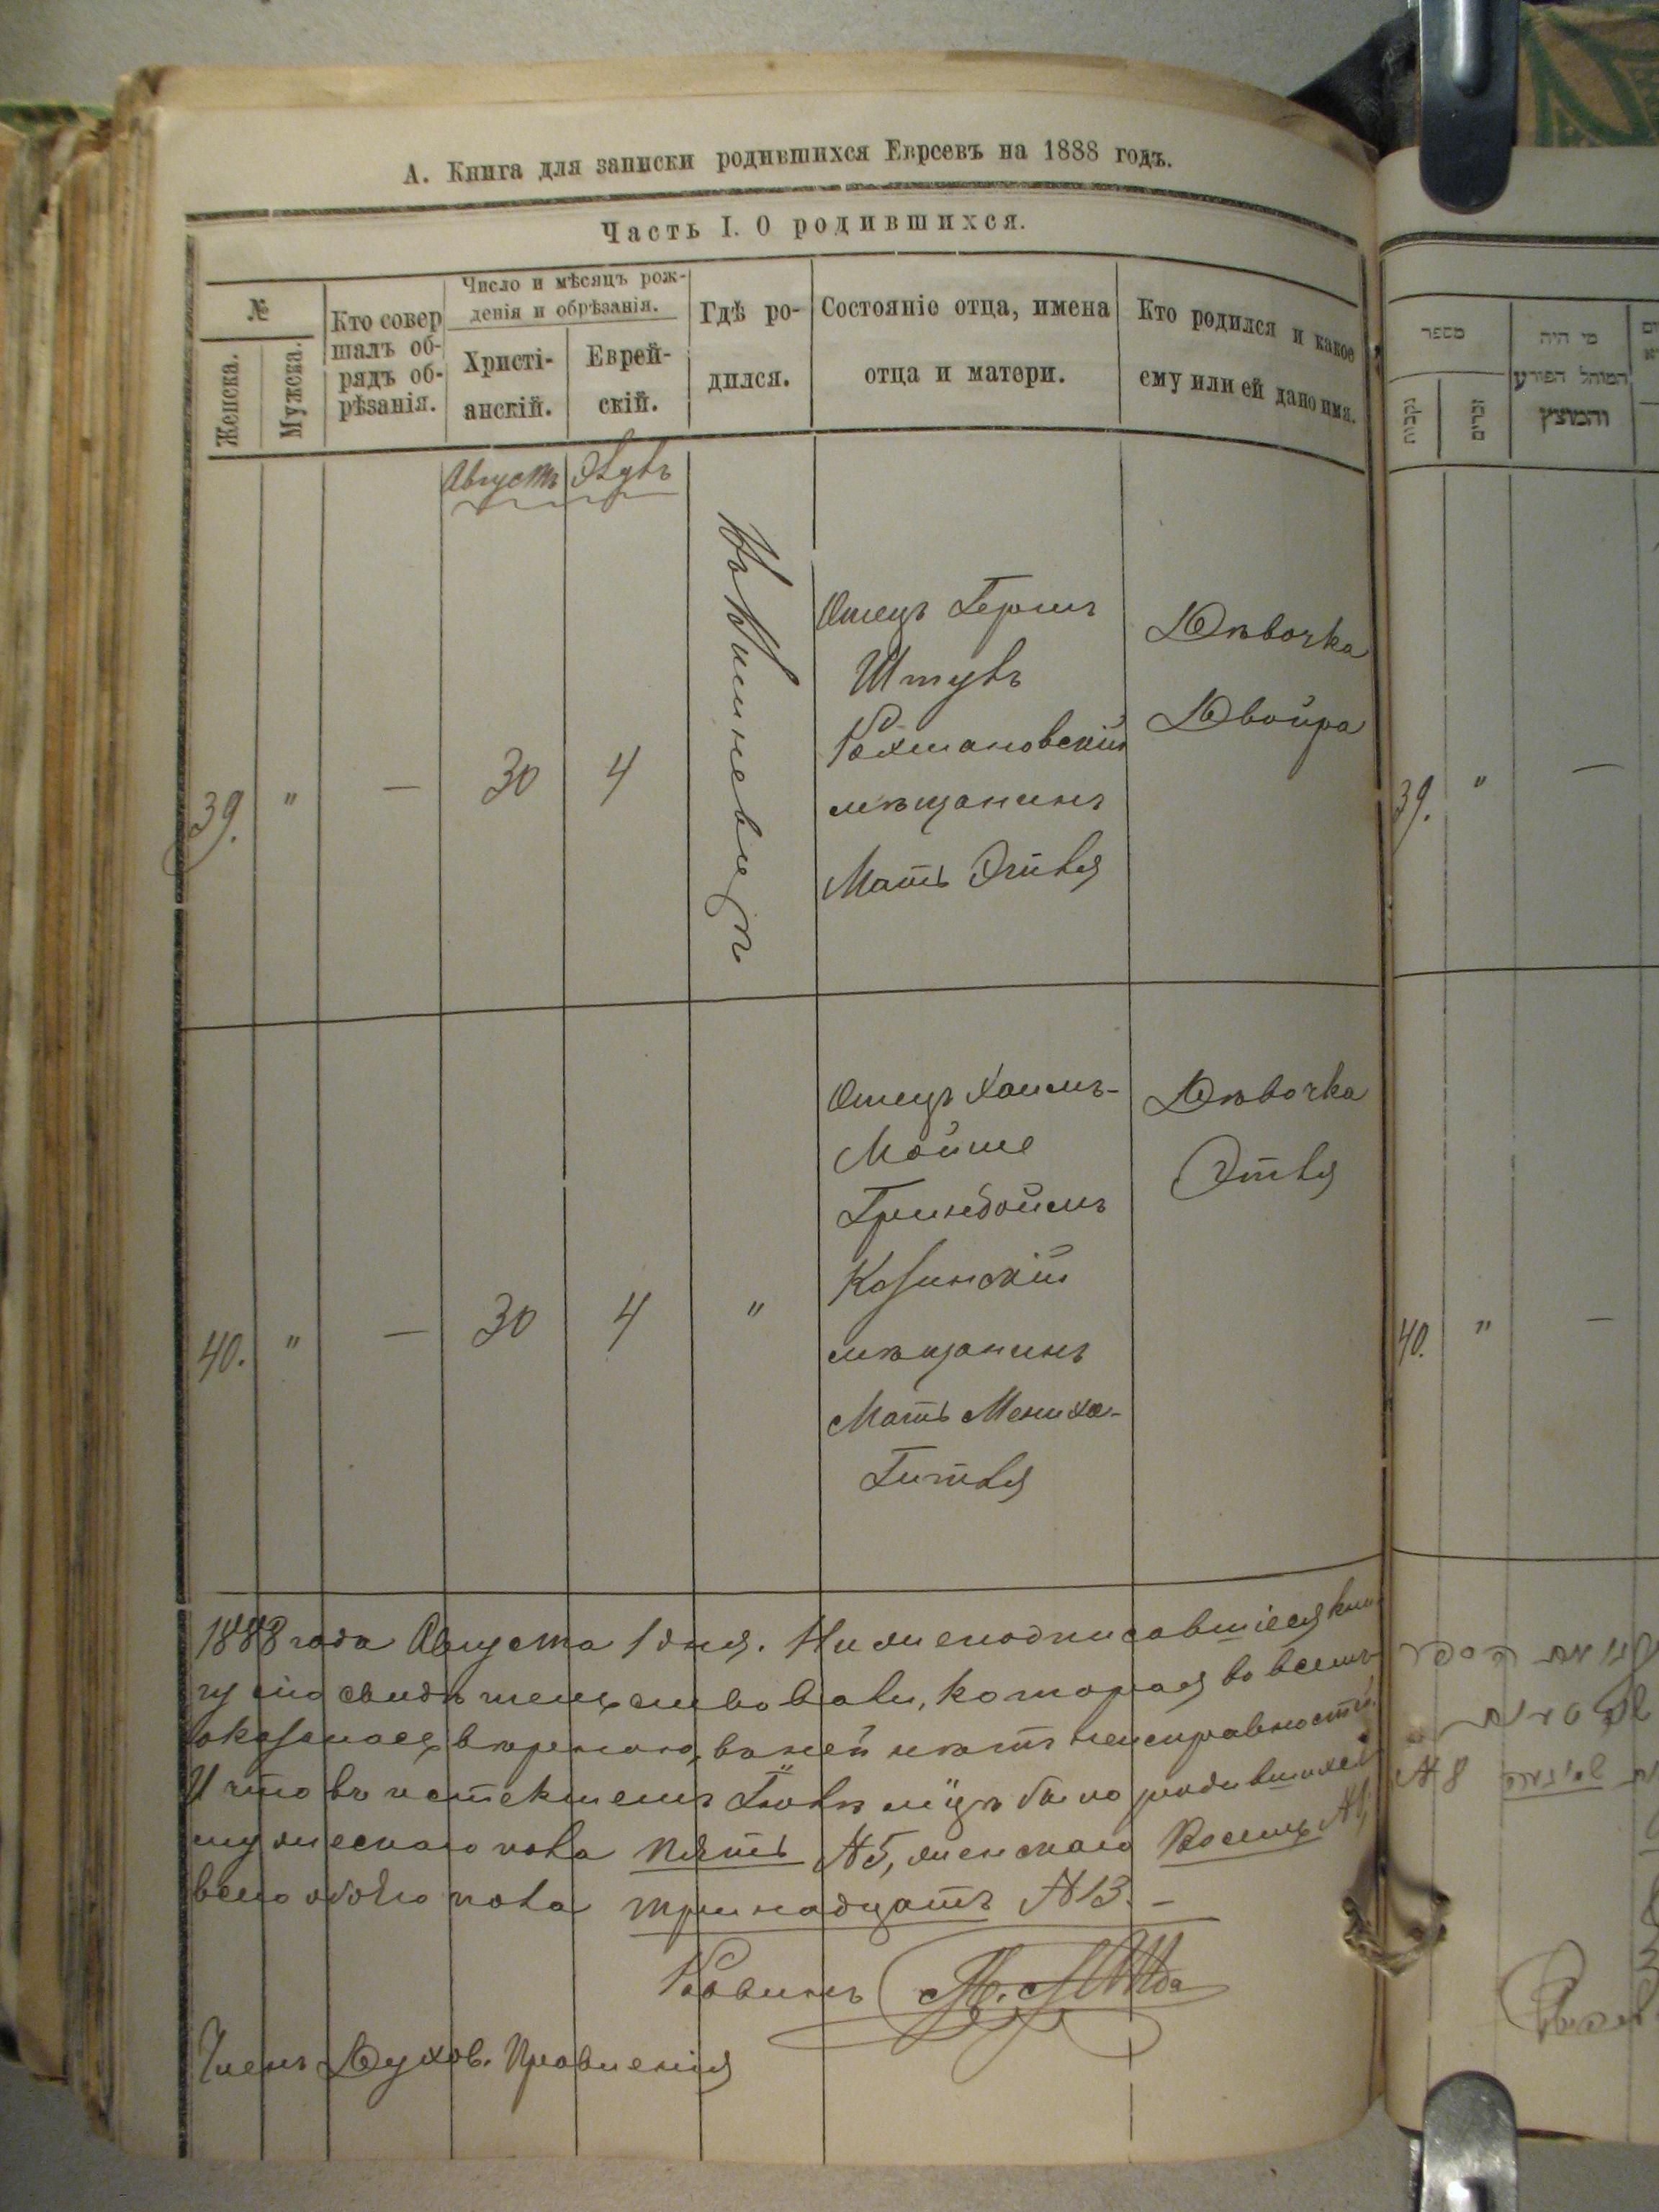 А. Книга для записки родившихся Евреевъ на 1888 годъ.
Часть I. О родившихся.
№
Женска.
Мужска.
Кто совер
шалъ об-
рядъ об-
рѣзанія.
Число и мѣсяцъ рож-
денія и обрѣзанія.
Христі-
анскій.
Еврей-
скій.
Гдѣ ро-
дился.
Состояніе отца, имена
отца и матери.
Кто родился и какое
ему или ей дано имя.
Августъ
Элулъ
39.
"
—
30
4
Отецъ Гершъ
Штулъ
Рахмановскій
мѣщанинъ
Мать Этля
Дѣвочка
Двойра
40.
"
—
30
4
"
Отецъ Хаимъ-
Мойше
Гринбоймъ
Козинскій
мѣщанинъ
Мать Мениха-
Гитля
Дѣвочка
Этля
1888 года Августа 1 дня. Нижеподписавшіеся кни-
гу сію свидѣтельствовали, которая во всемъ
оказалась вѣрною, въ ней нѣтъ неисправностей
И что въ истекшемъ Іюлѣ м-цѣ было родившихся
мужескаго пола пять №5, женскаго восемь №8,
всего обоего пола тринадцать №13. —
Раввинъ
Членъ Духов. Правленія
מספר
נקבות
זכרים
מי היה
המוהל הפורע
והמוצץ
39.
"
—
40.
"
—
№ 8